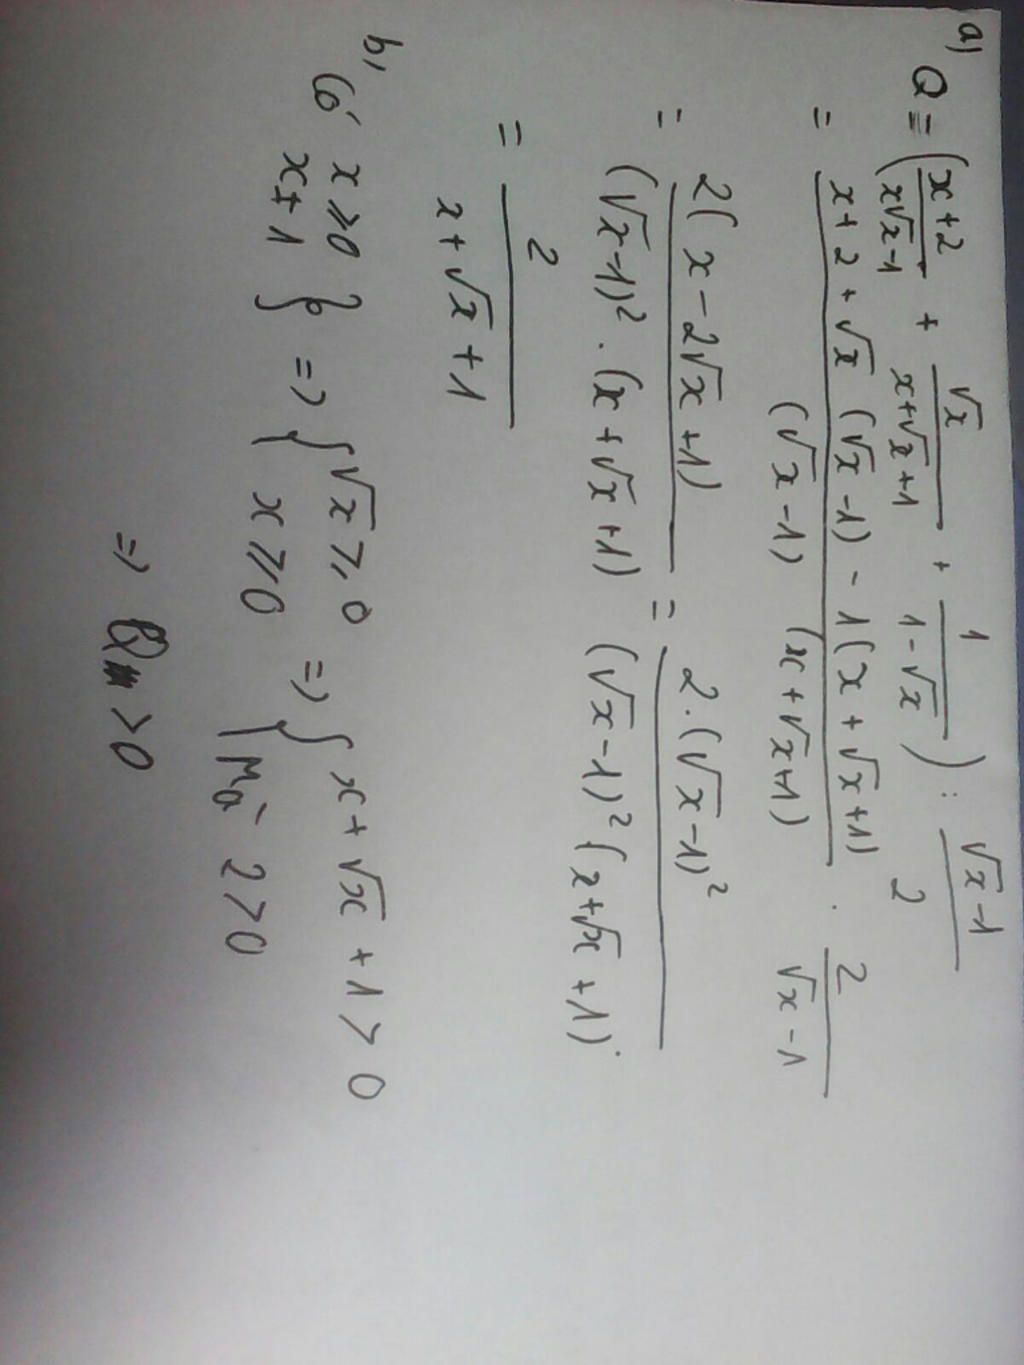 a) Q = ( (x+2)/(x√x-1) + √x/(x+√x+1) + 1/(1-√x) ) : (√x-1)/2
= (x+2+√x(√x-1) - 1(x+√x+1))/((√x-1)(x+√x+1)) . 2/(√x-1)
= 2(x-2√x+1)/((√x-1)².(x+√x+1)) = 2.(√x-1)²/((√x-1)²(x+√x+1)).
= 2/(x+√x+1)
b,
Có x ⩾ 0 } => { √x ⩾ 0 => { x+√x+1 > 0
x ≠ 1 x ⩾ 0 Mà 2 > 0
=> > 0